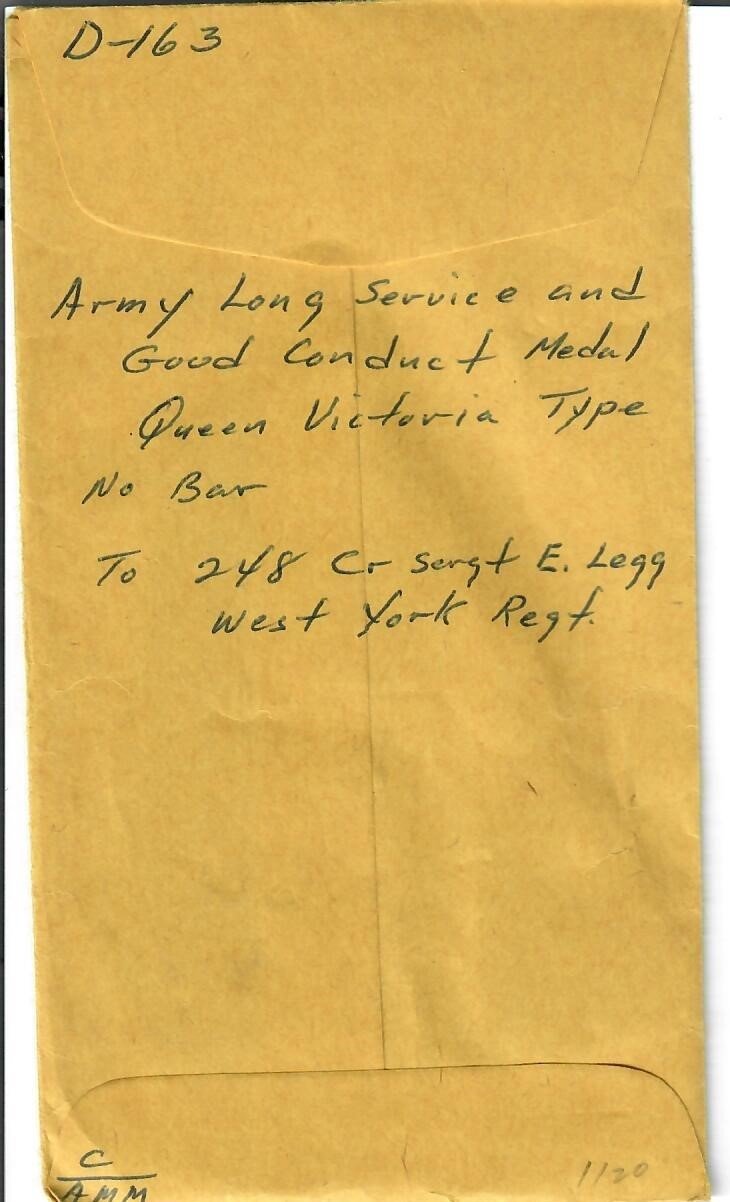 D-163
Army Long Service and
Good Conduct Medal
Queen Victoria Type
No Bar
To 248 Cr Sergt E. Legg
West York Regt.
C
AMM
1120